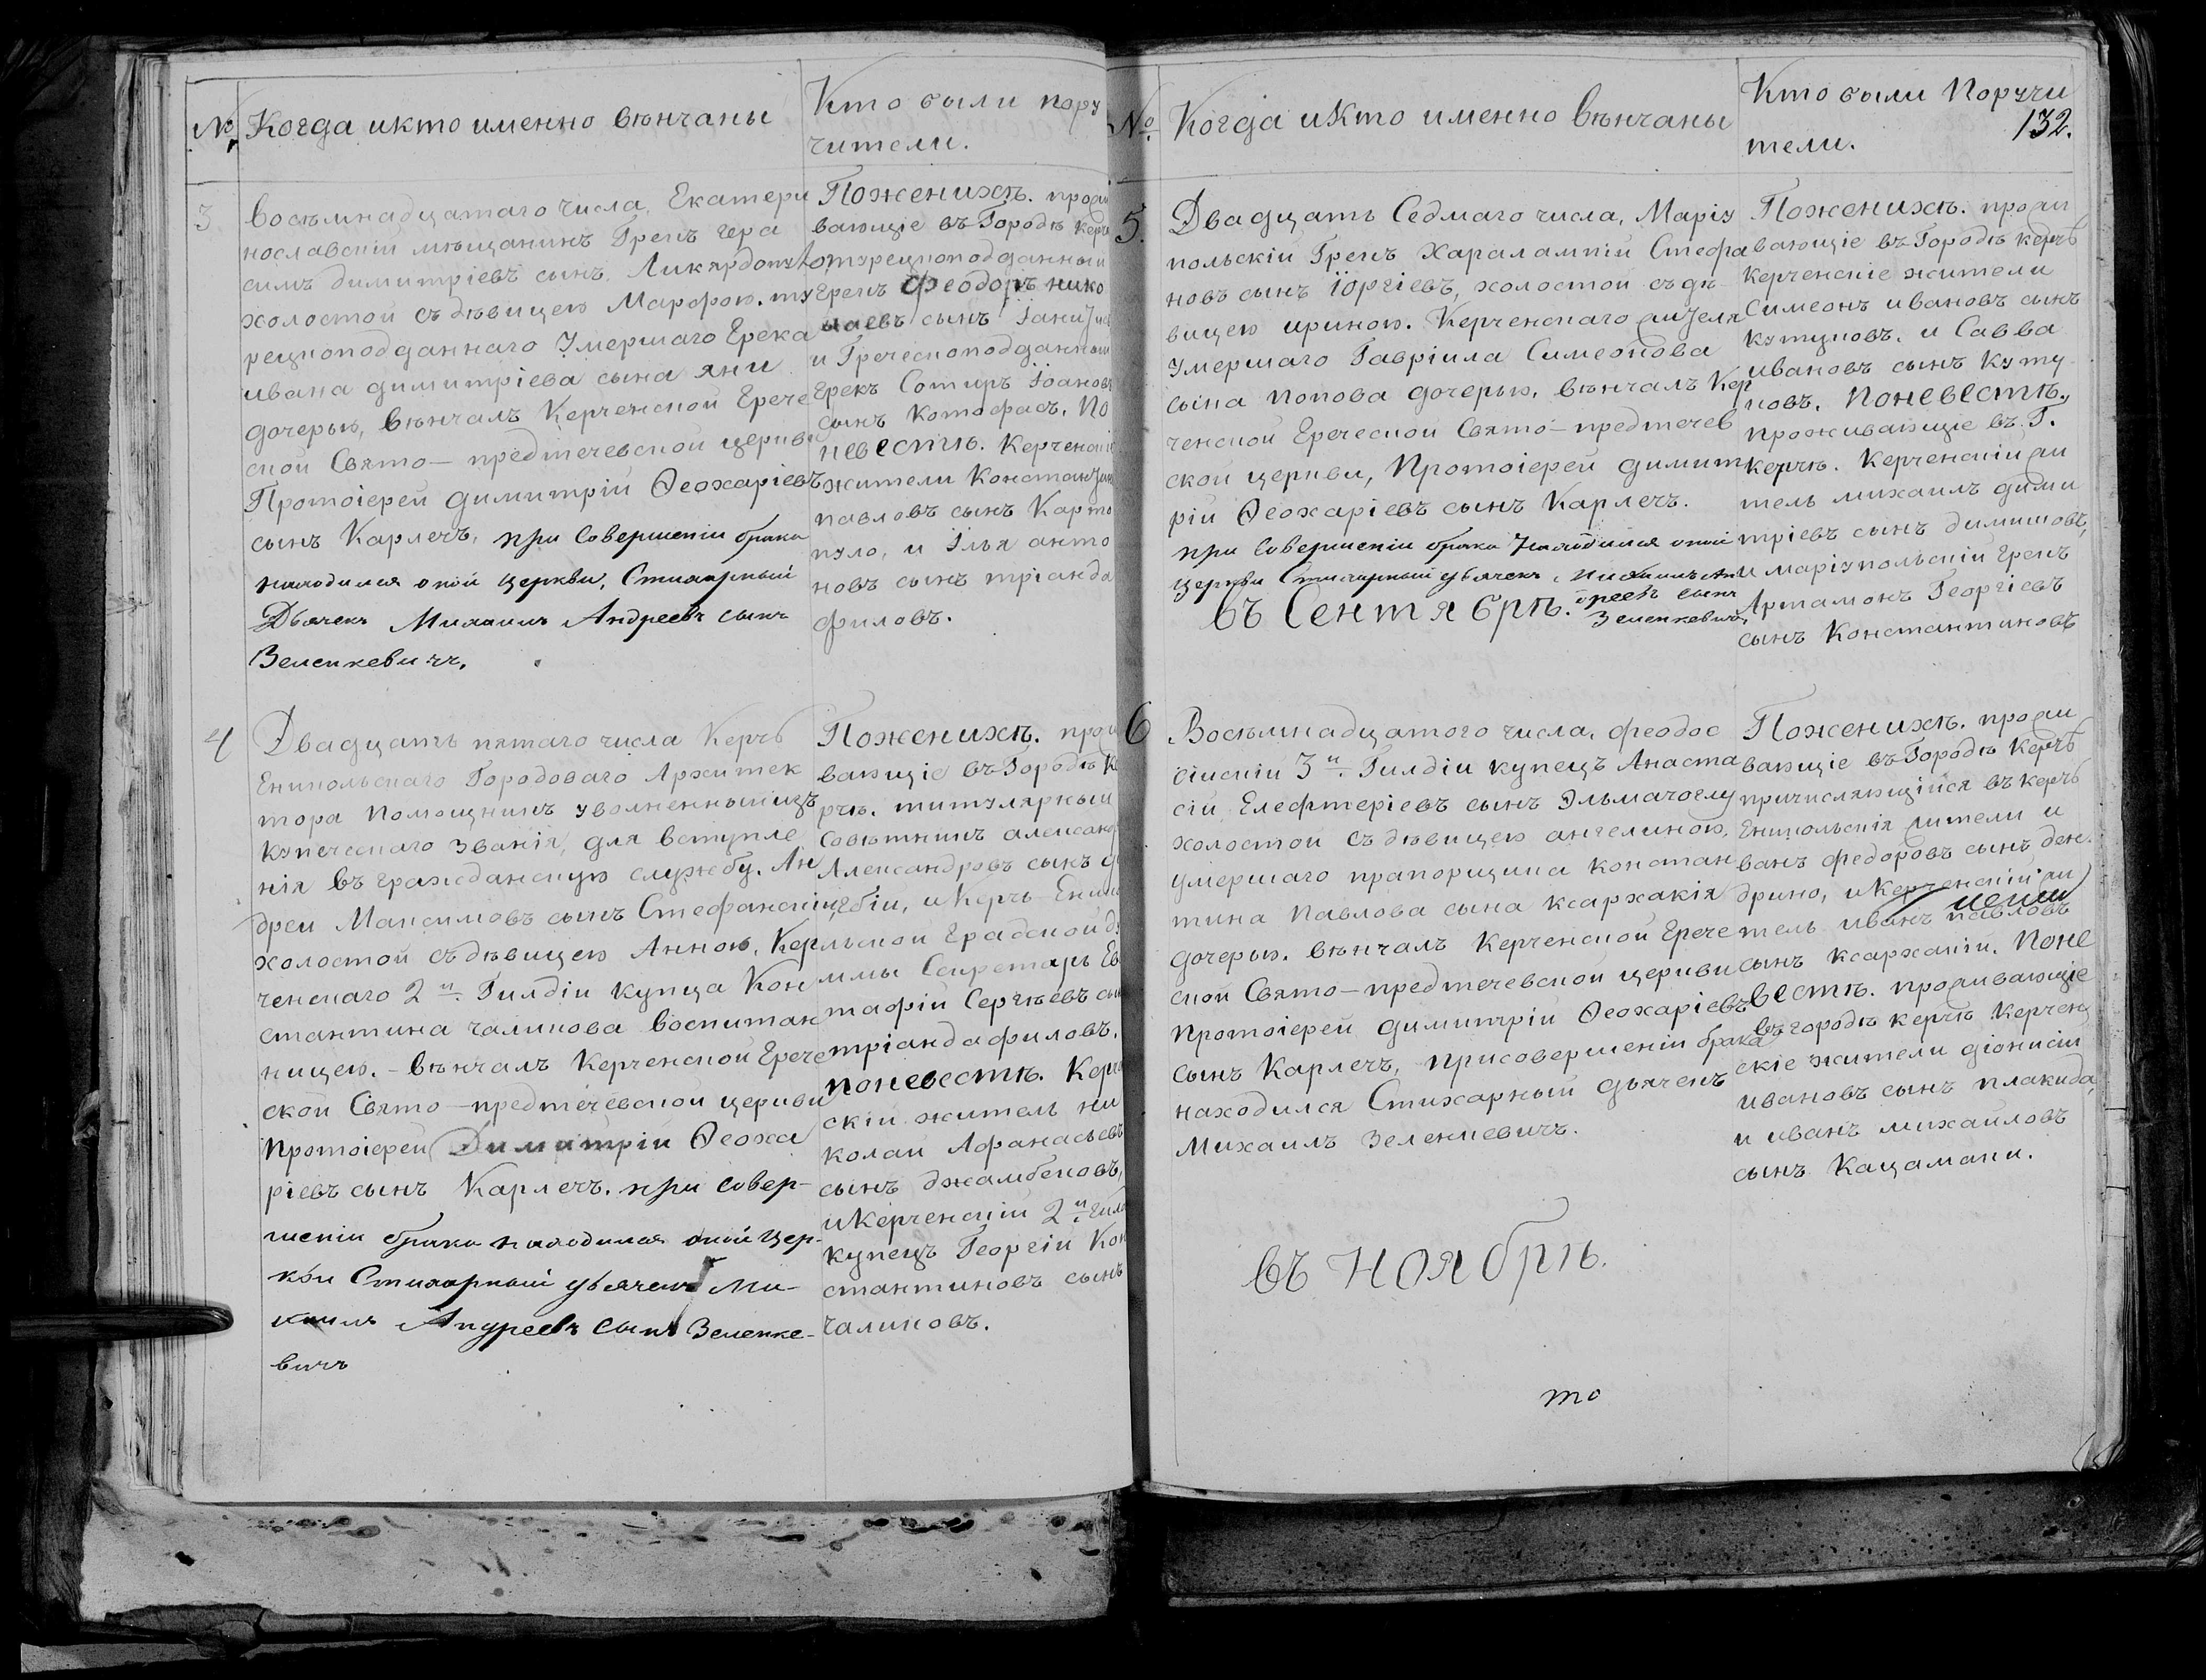 №
Когда икто именно вѣнчаны
Кто были пору
чители.
3
Восѣмнадцатаго числа, Екатери
нославскій мѣщанинъ Грекъ Гера
симъ димитріевъ сынъ Ликардопу
холостой съ дѣвицею Марфою. ту
рецкоподданнаго Умершаго Грека
ивана димитріева сына яни
дочерью, вѣнчалъ Керченской Грече
ской Свято-предтечевской церкви
Протоіерей димитрій Ѳеохаріевъ
сынъ Карлечъ, при Совершеніи брака
находился оной церкви, Стихарный
Дьячекъ Михаилъ Андреевъ сынъ
Зеленкевичъ.
Поженихѣ. прожи
вающіе въ Городѣ Керчѣ
турецкоподданный
Грекъ Феодоръ нико
лаевъ сынъ
и Греческоподданный
Грекъ Сотиръ іоановъ
сынъ Котофасъ. По
невестѣ. Керченскіе
жители Константинъ
павловъ сынъ Карпо
пуло, и Ілья анто
новъ сынъ тріанда
филовъ.
4
Двадцать пятаго числа Керчъ
Еникольскаго Городоваго Архитек
тора Помощникъ уволненный изъ
купеческаго званія, для вступле
нія въ гражданскую службу. Ан
дреи Максимовъ сынъ Стефанскій
холостой съ дѣвицею Анною, Кер
ченскаго 2й. Гилдіи купца Кон
стантина чаликова воспитан
ницею. - вѣнчалъ Керченской Грече
ской Свято-предтечевской церкви
Протоіерей Димитрій Ѳеоха
ріевъ сынъ Карлечъ. при совер-
шеніи брака находился оной цер-
кви Стихарный дьячекъ Ми-
хаилъ Андреевъ сынъ Зеленке-
вичъ
Поженихѣ. прожи
вающіе въ Городѣ Ке
рчѣ. титулярный
Совѣтникъ александръ
Александровъ сынъ
и Керчъ-Енико
льской Градской ду
ммы Секретарь Ев
тафій Сергѣевъ сынъ
тріандафиловъ.
поневестѣ. Керчен
скій житель ни
колаи Афанасьевъ
сынъ джамбековъ,
и Керченскій 2й. Гилд
купецъ Георгіи Кон
стантиновъ сынъ
чаликовъ.
№
Когда иКто именно вѣнчаны
Кто были Поручи
тели.
132.
5.
Двадцать Седмаго числа, Маріу
польскій Грекъ Харалампій Стефа
новъ сынъ Іоргіевъ, холостой съ дѣ
вицею ириною. Керченскаго жителя
Умершаго Гавріила Симеонова
сына попова дочерью. вѣнчалъ Кер
ченской Греческой Свято-предтечев
ской церкви, Протоіерей димит
рій Ѳеохаріевъ сынъ Карлечъ.
при Совершеніи брака находился оной
церкви Стихарный дьячекъ, Михаилъ Ан
дреевъ сынъ
Зеленкевичъ,
Въ Сентябрѣ.
Поженихѣ. прожи
вающіе въ Городѣ керчѣ
керченскіе жители
Симеонъ ивановъ сынъ
кутуповъ. и Савва
ивановъ сынъ куту
повъ. Поневестѣ.
проживающіе въ Г.
керчѣ. Керченскій жи
тель михаилъ дими
тріевъ сынъ
и маріупольскій Грекъ
Артамонъ Георгіевъ
сынъ Константиновъ
6
Восѣмнадцатого числа. феодос
ійскій 3й. Гилдіи купецъ Анаста
сій Елефтеріевъ сынъ Элмачоглу
холостой съ дѣвицею ангелиною,
умершаго прапорщика констан
тина Павлова сына ксархакія
дочерью. вѣнчалъ Керченской Грече
ской Свято-предтечевской церкви
Протоіерей димитрій Ѳеохаріевъ
сынъ Карлечъ, присовершеніи брака
находился Стихарный дьячекъ
Михаилъ Зеленкевичъ.
Поженихѣ. прожи
вающіе въ Городѣ Керчѣ
причисляющійся въ керчъ
Еникольскія жители и
ванъ федоровъ сынъ ден
дрино, и Керченскій жи
тель иванъ павловъ
сынъ ксархакіи. Поне
вестѣ. проживающіе
въ городѣ керчѣ Керчен
скіе жители діонисій
ивановъ сынъ плакида,
и иванъ михаиловъ
сынъ Кацамани.
въ Ноябрѣ.
то